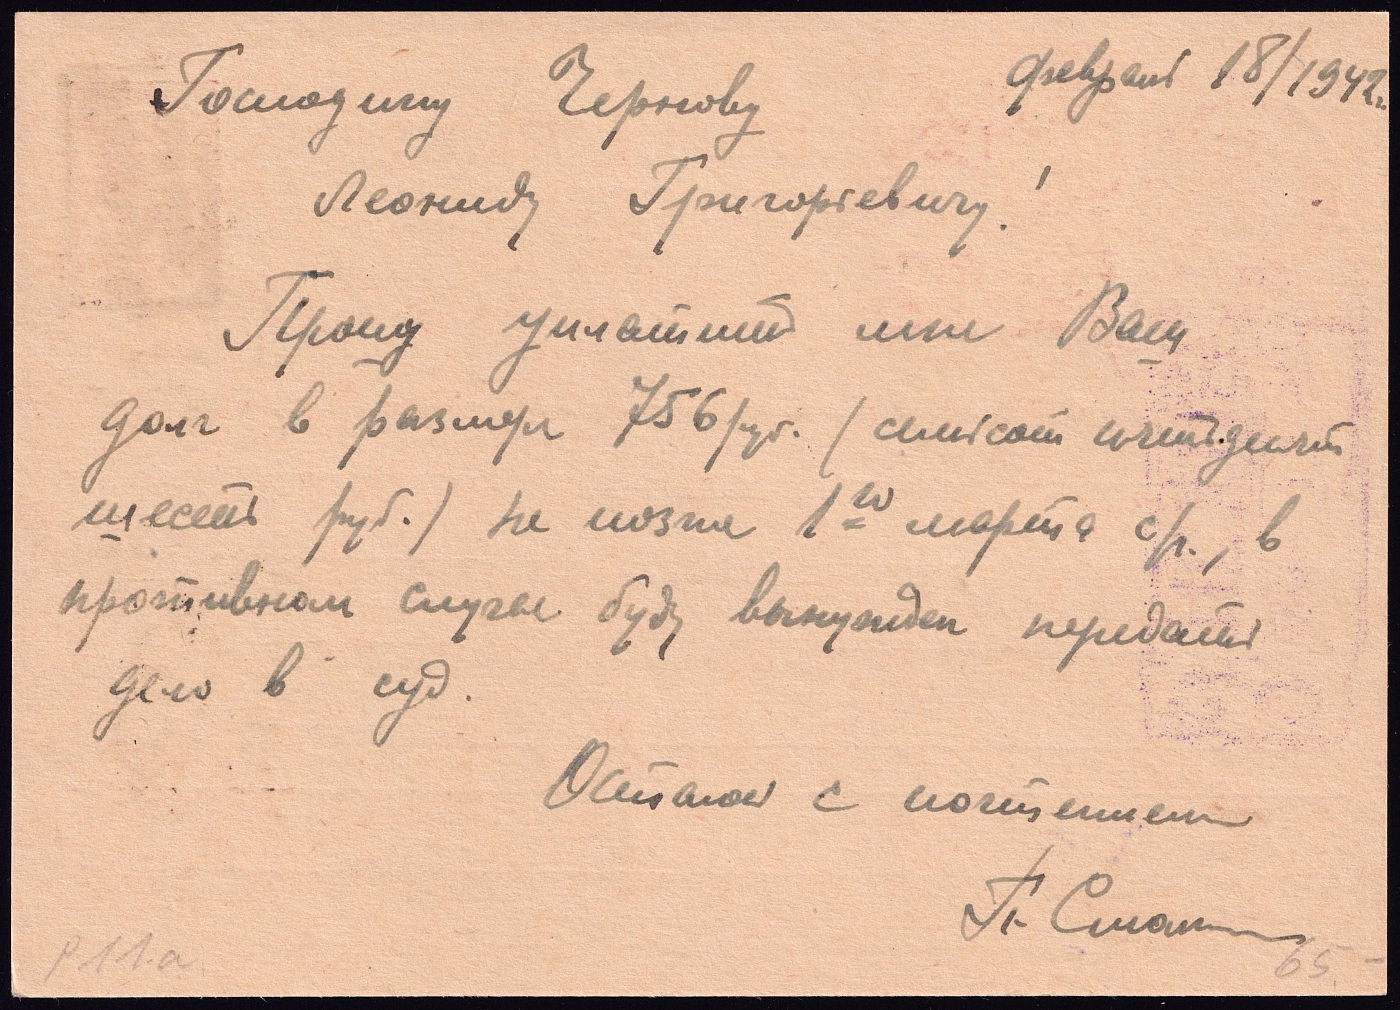 Господину Чернову февраля 18/1942г.
Леониду Григорьевичу!
Прошу уплатить мне Ваш
долг в размере 756 руб. (семьсот пятьдесят
шесть руб.) не позже 1го марта с/г., в
противном случае буду вынужден передать
дело в суд.
Остаюсь с почтением
P 11.a
65.-